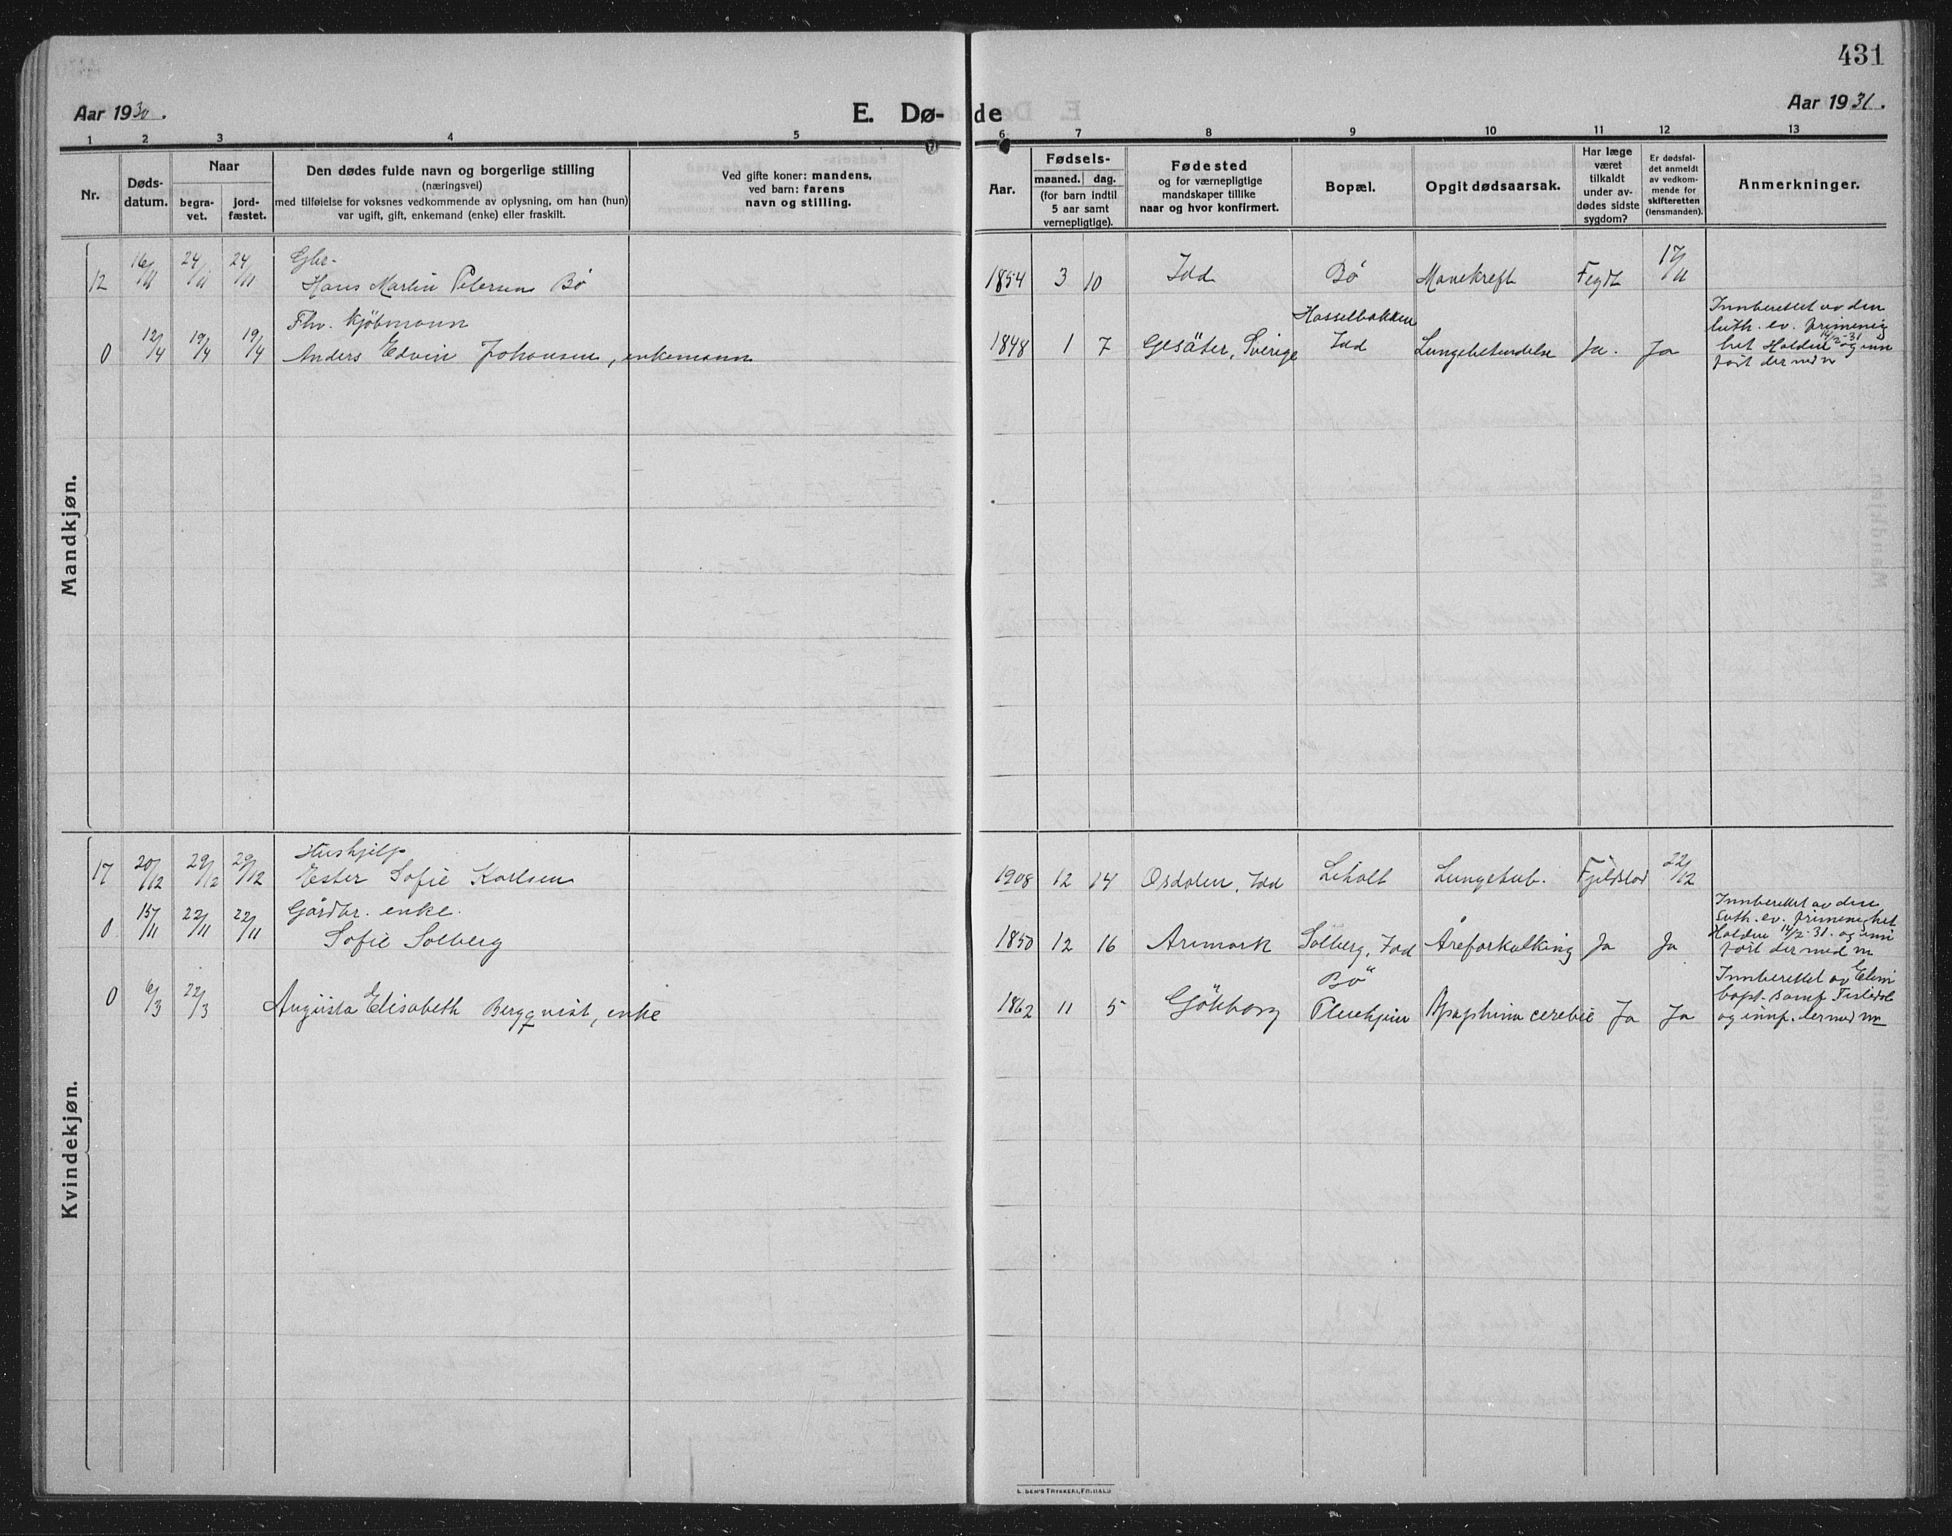 431
Aar 1930.
E. Dø-
de
Aar 1931.
1 2 3 4 5 6 7 8 9 10 11 12 13
Nr.
Døds-
datum.
Naar
begra-
vet.
jord-
fæstet.
Den dødes fulde navn og borgerlige stilling
(næringsvei)
med tilføielse for voksnes vedkommende av oplysning, om han (hun)
var ugift, gift, enkemand (enke) eller fraskilt.
Ved gifte koner: mandens,
ved barn: farens
navn og stilling.
Aar.
Fødsels-
maaned. dag.
(for barn indtil
5 aar samt
vernepligtige).
Fødested
og for værnepligtige
mandskaper tillike
naar og hvor konfirmert.
Bopæl.
Opgit dødsaarsak.
Har læge
været
tilkaldt
under av-
dødes sidste
sygdom?
Er dødsfal-
det anmeldt
av vedkom-
mende for
skifteretten
(lensmanden).
Anmerkninger.
Mandkjøn.
Gbr.
12 16/11 24/11 24/11 Hans Martin Petersen Bø 1854 3 10 Idd Bø Mavekreft Fegth 17/11
Fhv. kjøbmann
0 12/4 19/4 19/4 Anders Edvin Johansen, enkemann 1848 1 7 Gesäter, Sverige Hasselbakken Idd Lungebetendelse Ja. Ja
Innberettet av den
luth. ev. frimenig
het Halden 14/2-31 og inn
ført der med n
Kvindekjøn.
Hushjelp
17 20/12 29/12 29/12 Ester Sofie Karlsen 1908 12 14 Ørdalen, Idd Liholt Lungetub. Fjeldstad 22/12
Gårdbr. enke.
0 15/11 22/11 22/11 Sofie Solberg 1850 12 16 Aremark Solberg, Idd Åreforkalkning Ja Ja
Innberettet av den
luth. ev. frimenighet
Halden 14/2-31. og inn
ført der med n
0 6/3 22/3 Augusta Elisabeth Bergqvist, enke 1862 11 5 Göteborg Bø cerebri Ja Ja
Innberettet av
bapt. samf.
og innf. der med nr